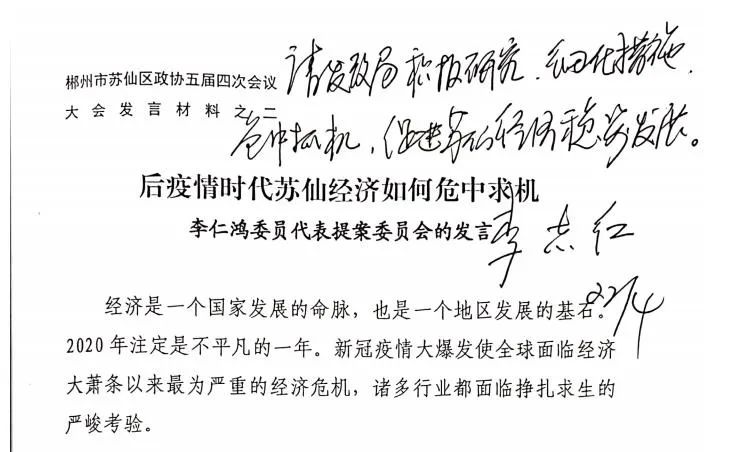 请发改局积极研究，细化措施，
危中抓机，促进苏仙经济稳步发展。
李志红
22/4
郴州市苏仙区政协五届四次会议
大会发言材料之二
后疫情时代苏仙经济如何危中求机
李仁鸿委员代表提案委员会的发言
经济是一个国家发展的命脉，也是一个地区发展的基石。
2020年注定是不平凡的一年。新冠疫情大爆发使全球面临经济
大萧条以来最为严重的经济危机，诸多行业都面临挣扎求生的
严峻考验。